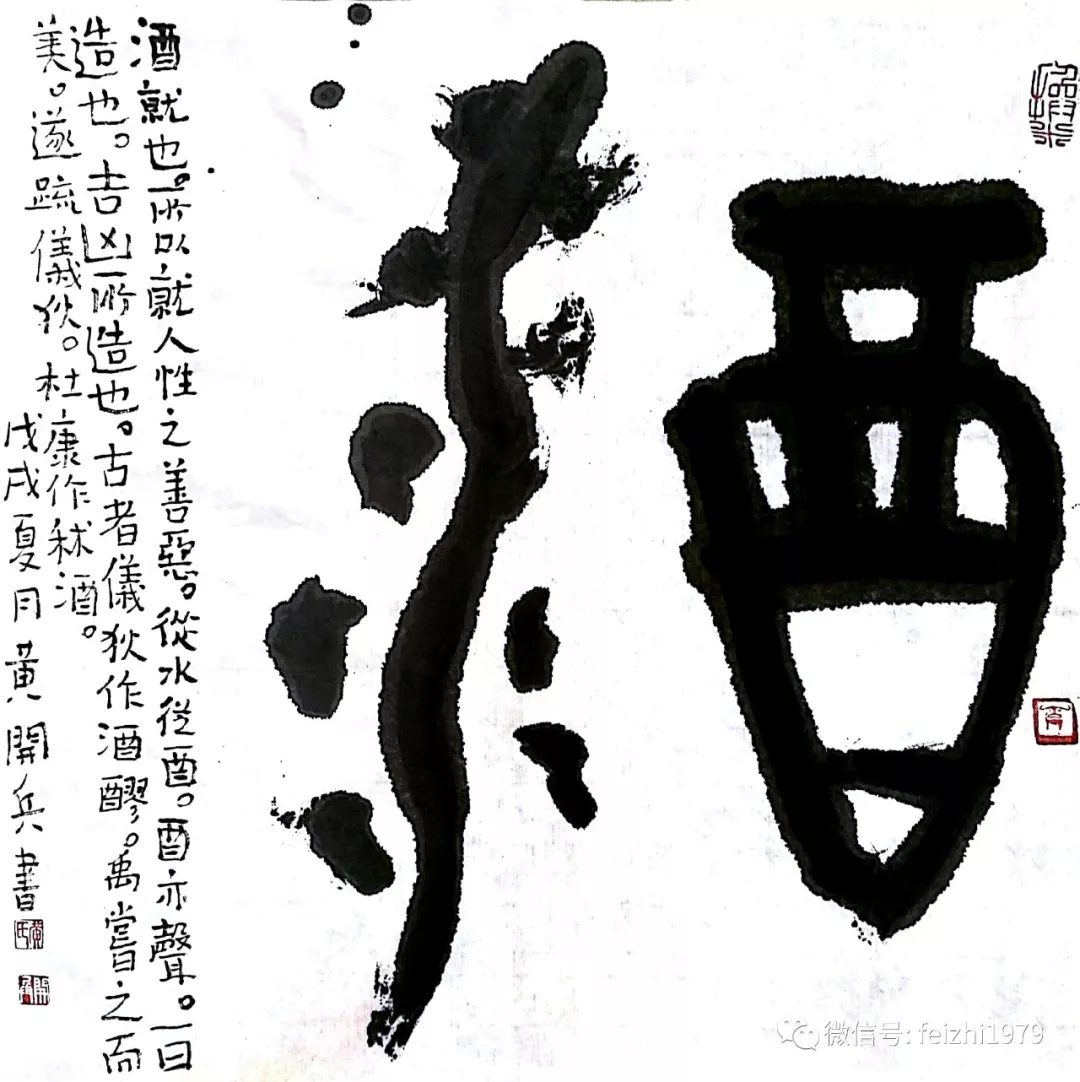 酒
酒就也。所以就人性之善惡。從水從酉。酉亦聲。一曰
造也。吉凶所造也。古者儀狄作酒醪。禹嘗之而
美。遂疏儀狄。杜康作秫酒。
戊戌夏月黄開兵書
微信号: feizhi1979